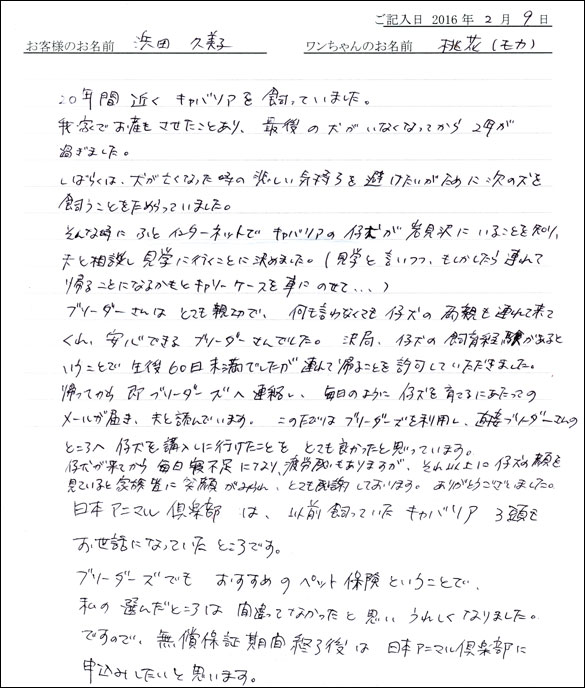 ご記入日 2016 年 2 月 9 日
お客様のお名前 浜田 久美子 ワンちゃんのお名前 桃花(モカ)
20年間近くキャバリアを飼っていました。
我家でお産もさせたことあり、最後の犬がいなくなってから2年が
過ぎました。
しばらくは、犬が亡くなった時の悲しい気持ちを避けたいがために次の犬を
飼うことをためらっていました。
そんな時にふとインターネットでキャバリアの仔犬が岩見沢にいることを知り、
夫と相談し見学に行くことに決めました。(見学と言いつつ、もしかしたら連れて
帰ることになるかもとキャリーケースを車にのせて、、、)
ブリーダーさんはとても親切で、何も言わなくても仔犬の両親も連れて来て
くれ、安心できるブリーダーさんでした。決局、仔犬の飼育経験があると
いうことで生後60日未満でしたが連れて帰ることを許可していただきました。
帰ってから即ブリーダーズへ連絡し、毎日のように仔犬を育てるにあたっての
メールが届き、夫と読んでいます。このたびはブリーダーズを利用し、直接ブリーダーさんの
ところへ仔犬を購入しに行けたことをとても良かったと思っています。
仔犬が来てから毎日寝不足になり、疲労感もありますが、それ以上に仔犬の顔を
見ていると家族皆に笑顔がみられ、とても感謝しております。ありがとうございました。
日本アニマル倶楽部は、以前飼っていたキャバリア3頭も
お世話になっていたところです。
ブリーダーズでもおすすめのペット保険ということで、
私の選んだところは間違ってなかったと思いうれしくなりました。
ですので、無償保証期間終了後は日本アニマル倶楽部に
申込みしたいと思います。